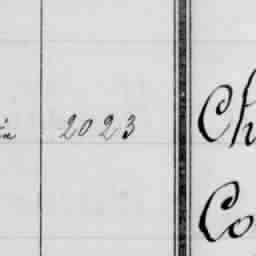 in 2023 Ch
Co